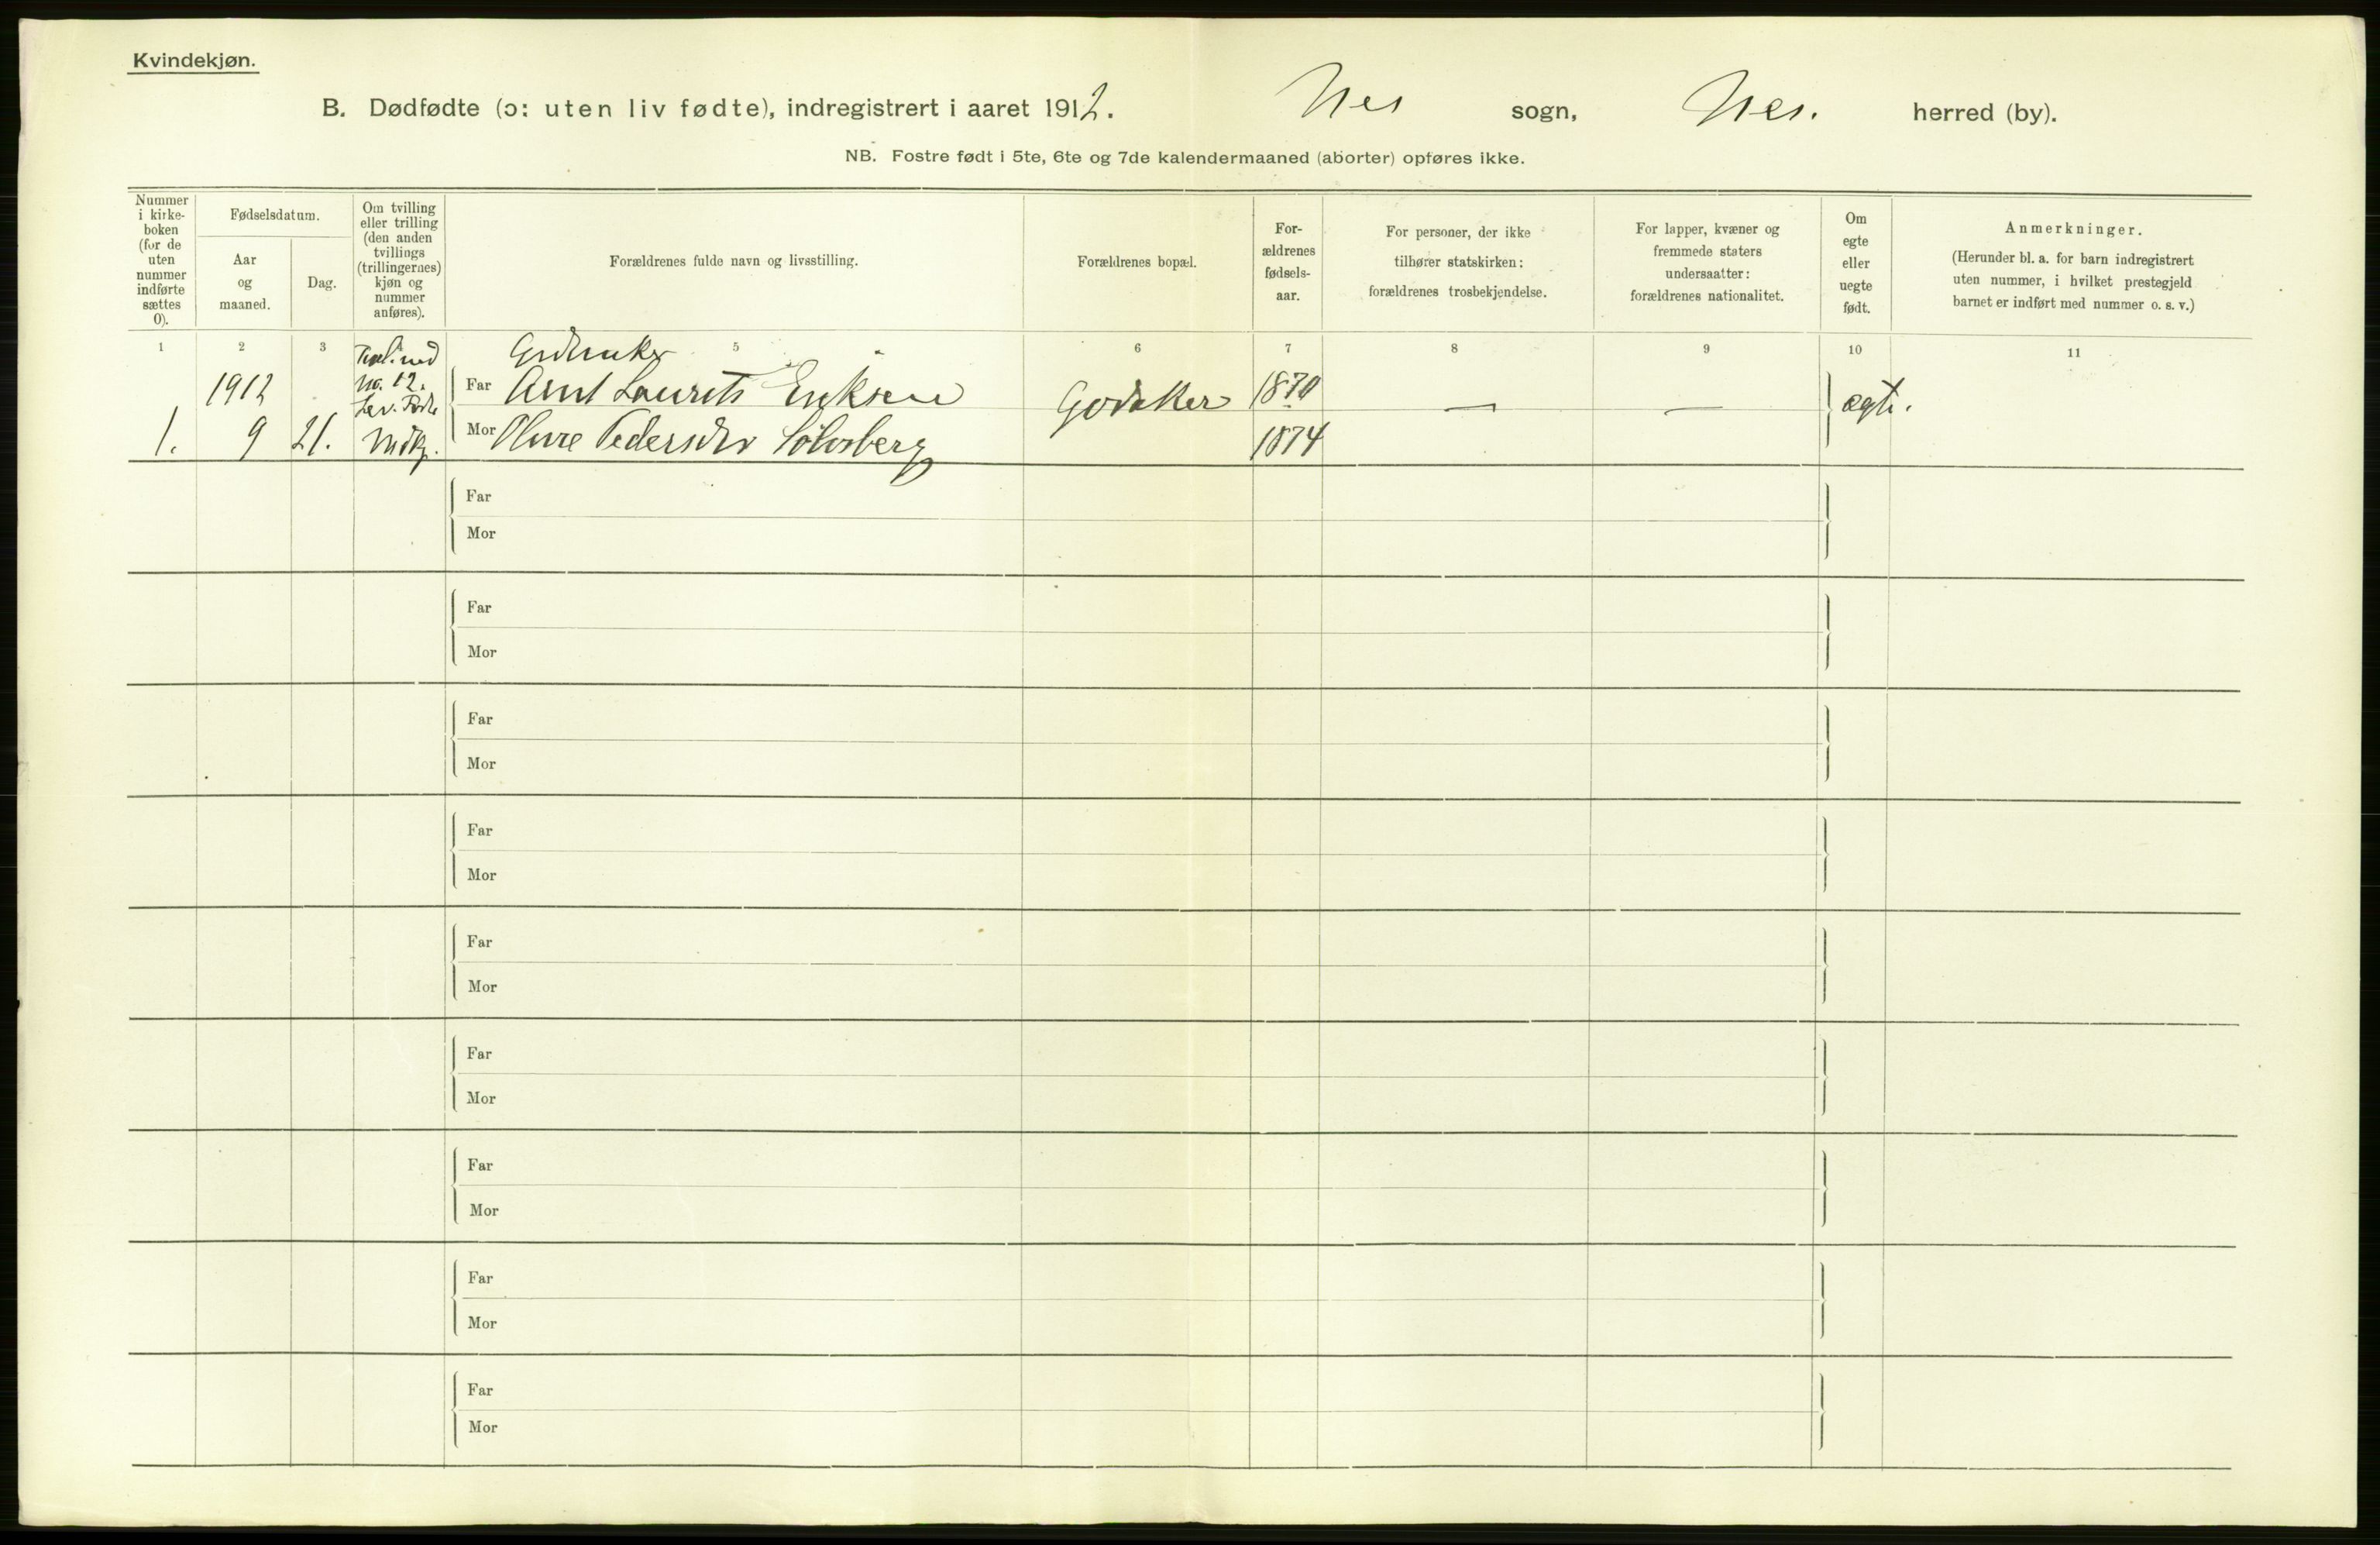 Kvindekjøn.
B. Dødfødte (ɔ: uten liv fødte), indregistrert i aaret 1912. Nes sogn, Nes. herred (by).
NB. Fostre født i 5te, 6te og 7de kalendermaaned (aborter) opføres ikke.
Nummer
i kirke-
boken
(for de
uten
nummer
indførte
sættes
0).
Fødselsdatum.
Aar
og
maaned.
Dag.
Om tvilling
eller trilling
(den anden
tvillings
(trillingernes)
kjøn og
nummer
anføres).
Forældrenes fulde navn og livsstilling.
Forældrenes bopæl.
For-
ældrenes
fødsels-
aar.
For personer, der ikke
tilhører statskirken:
forældrenes trosbekjendelse.
For lapper, kvæner og
fremmede staters
undersaatter:
forældrenes nationalitet.
Om
egte
eller
uegte
født.
Anmerkninger.
(Herunder bl. a. for barn indregistrert
uten nummer, i hvilket prestegjeld
barnet er indført med nummer o. s. v.)
1 2 3 5 6 7 8 9 10 11
1.
1912
9
21.
No. 12.
Lev. Fødte
Mdkj.
Grdbruker
Far Arnt Laurits Eriksen
Mor Oline Pedersdtr Solosberg
Godaker
1870
1874
—
—
ægte.
Far
Mor
Far
Mor
Far
Mor
Far
Mor
Far
Mor
Far
Mor
Far
Mor
Far
Mor
Far
Mor